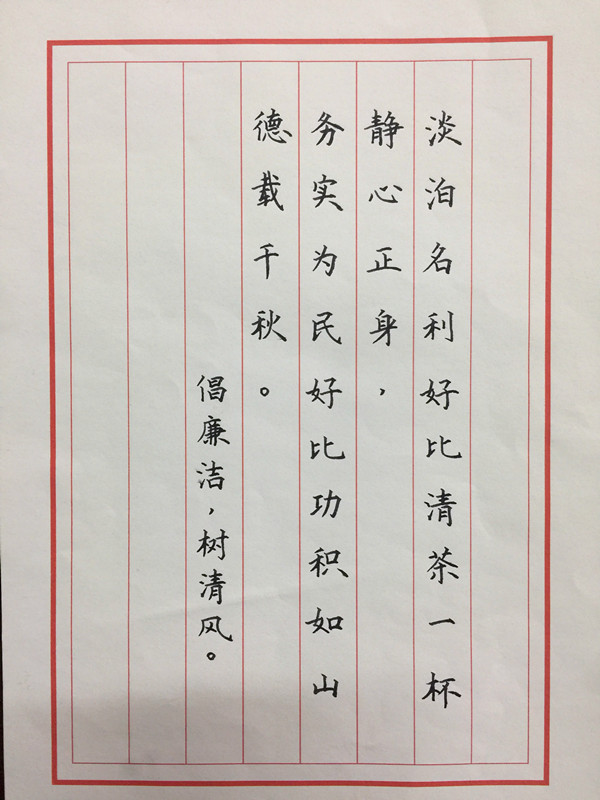 淡泊名利好比清茶一杯
静心正身，
务实为民好比功积如山
德载千秋。
倡廉洁，树清风。